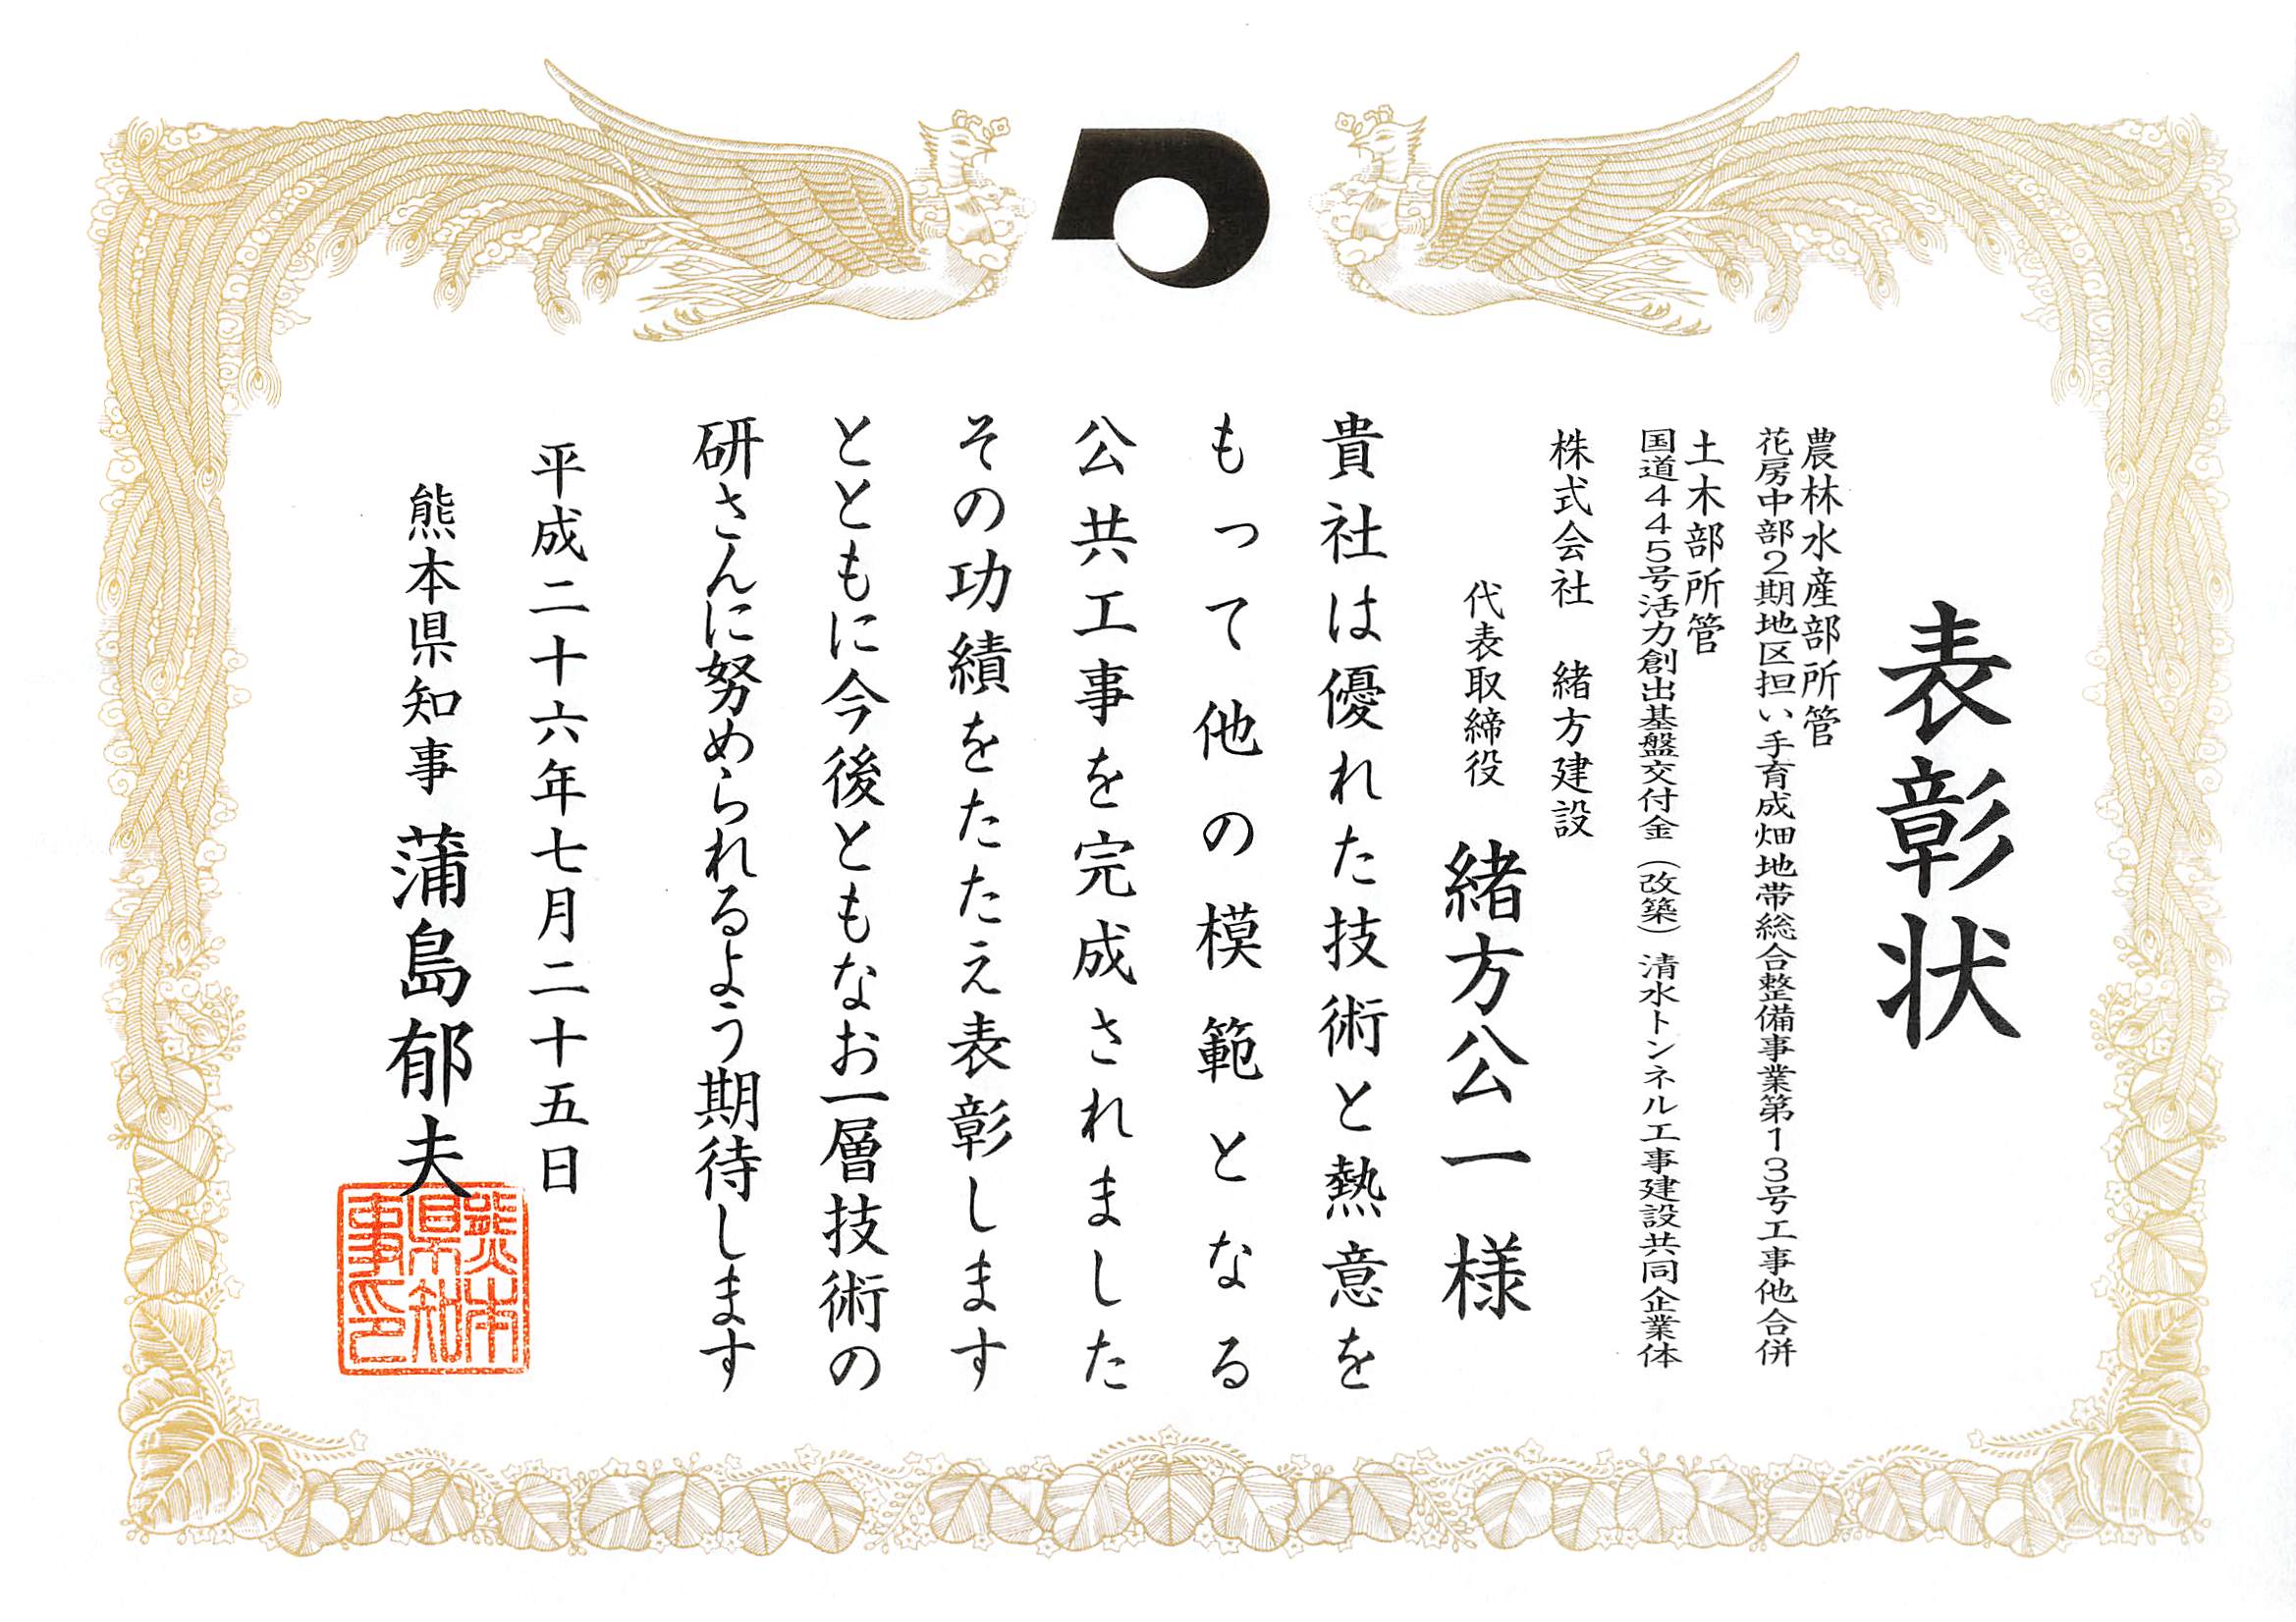 表彰状
農林水産部所管
花房中部2期地区担い手育成畑地帯総合整備事業第13号工事他合併
土木部所管
国道445号活力創出基盤交付金（改築）清水トンネル工事建設共同企業体
株式会社　緒方建設
代表取締役　緒方公一様
貴社は優れた技術と熱意を
もって他の模範となる
公共工事を完成されました
その功績をたたえ表彰します
とともに今後ともなお一層技術の
研さんに努められるよう期待します
平成二十六年七月二十五日
熊本県知事　蒲島郁夫
熊本
県知
事印